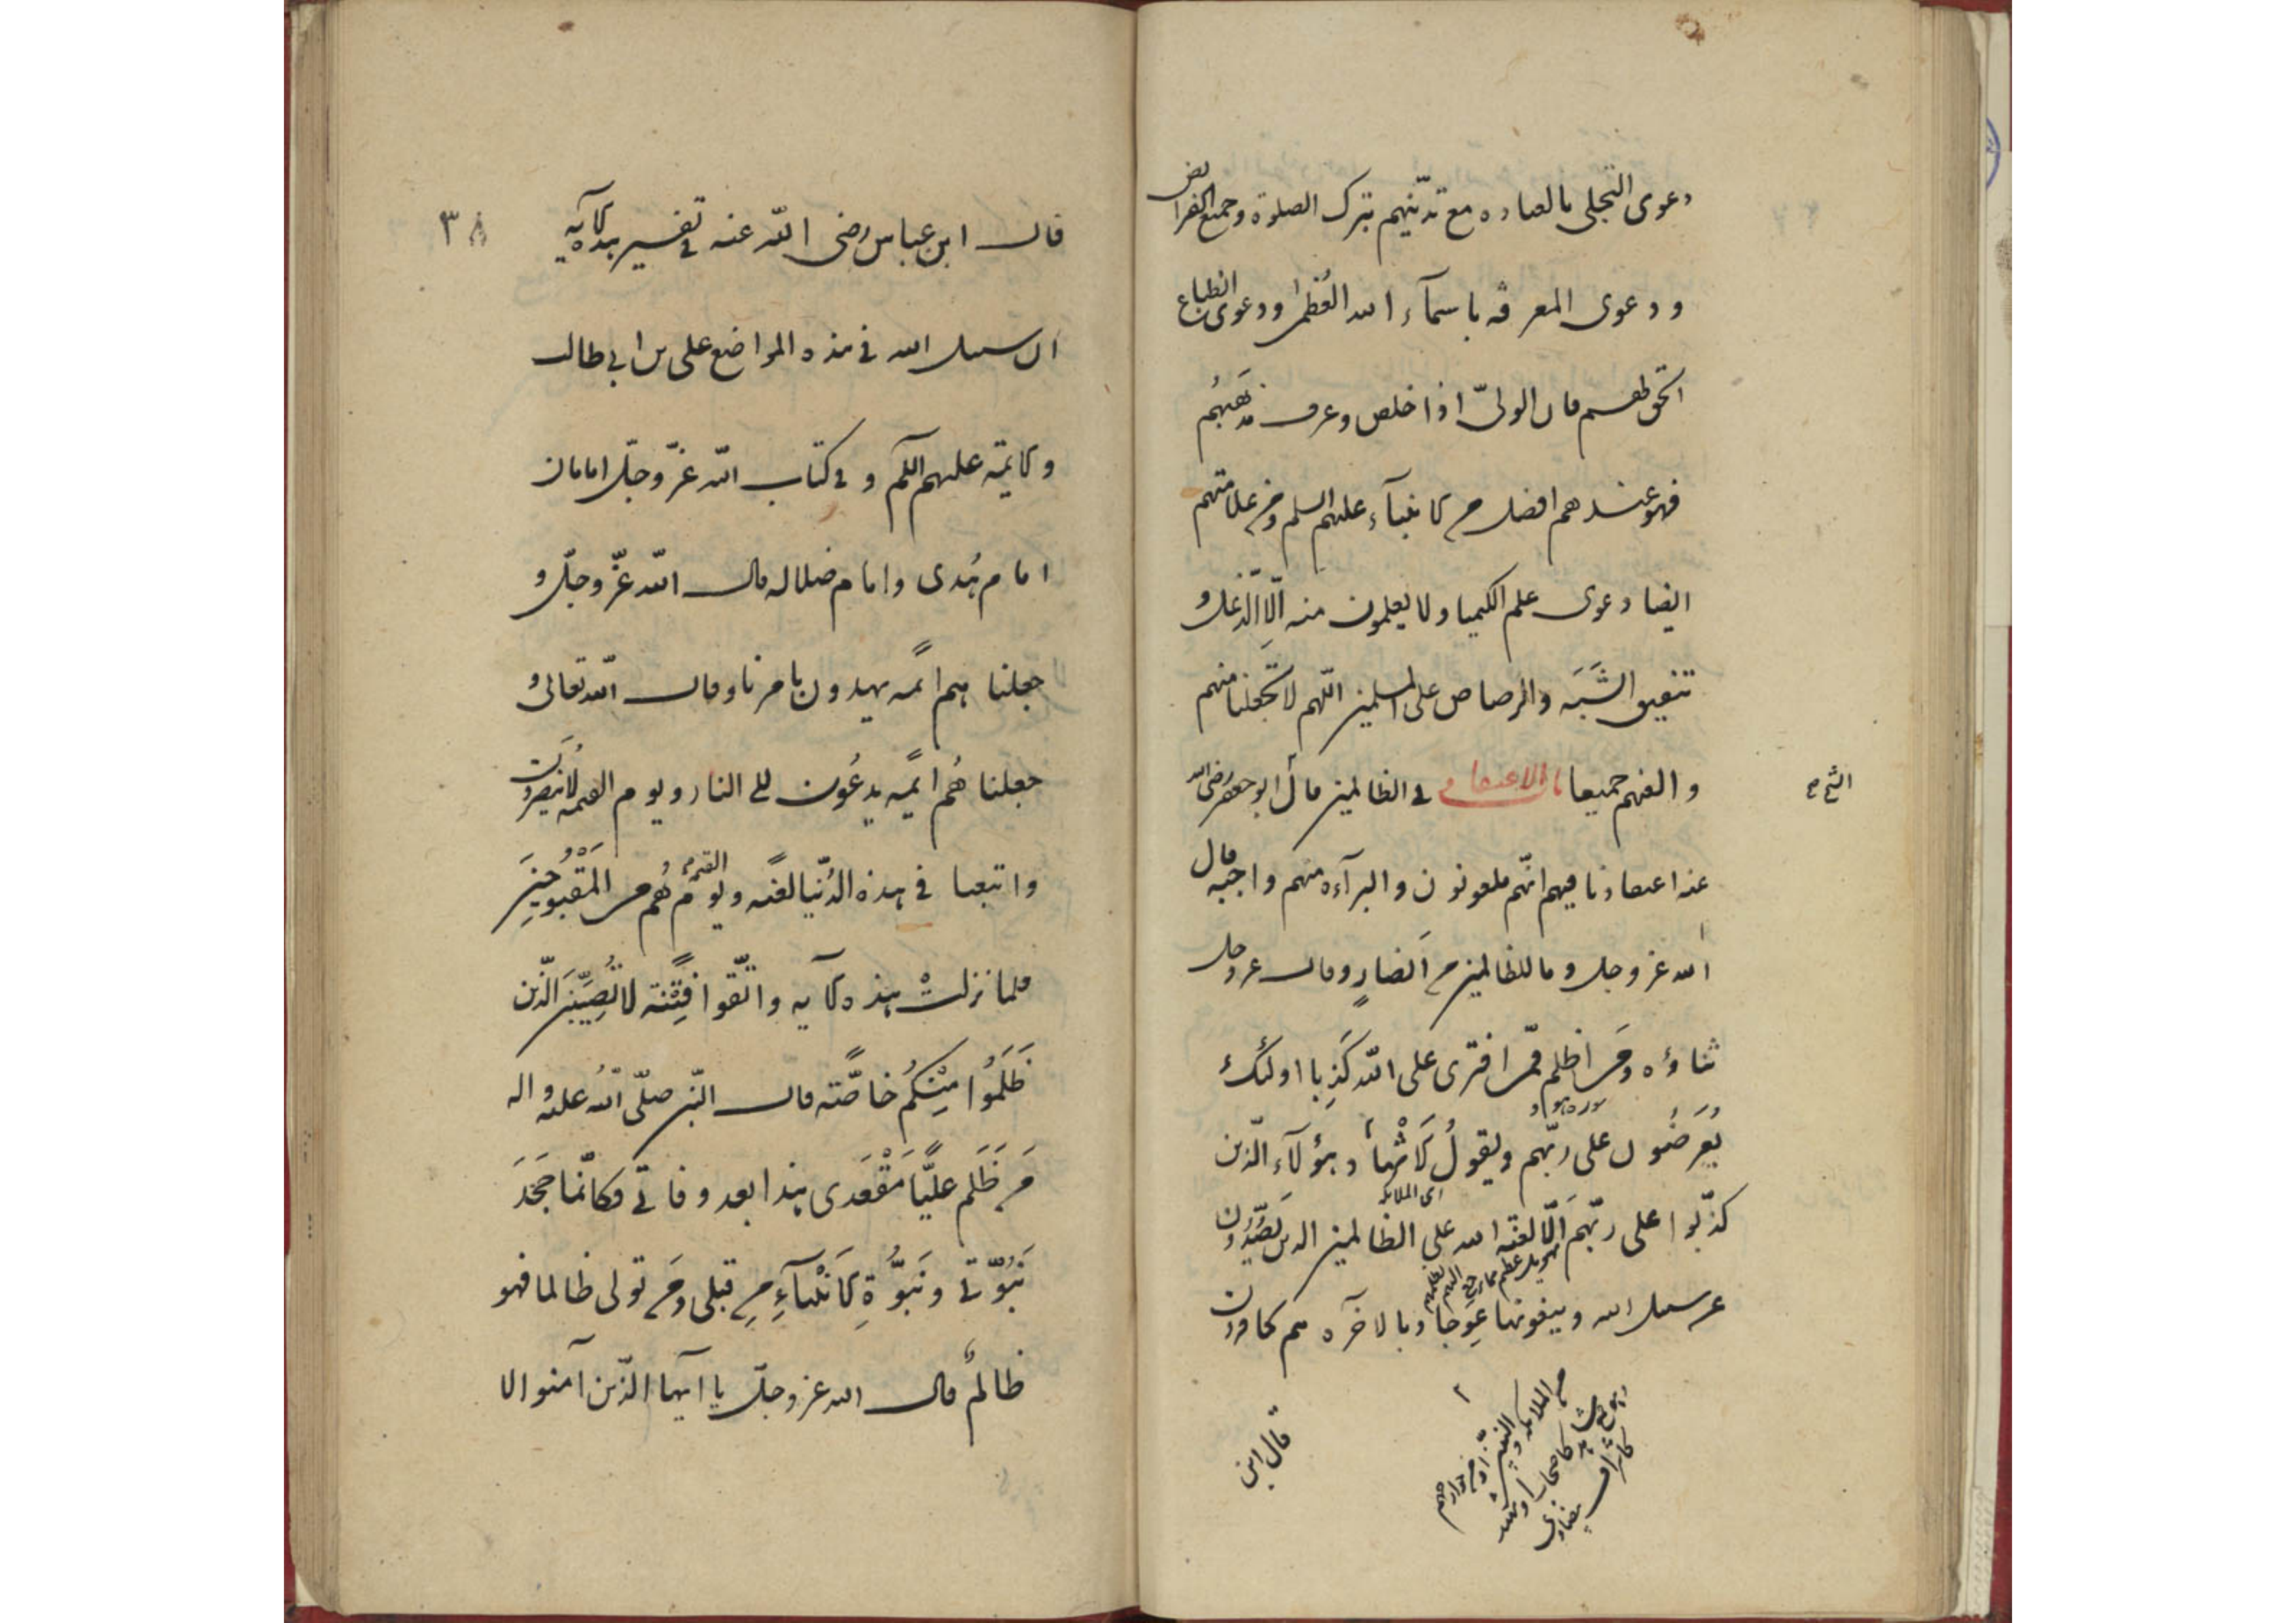 دعوى التجلى بالعباده مع تدينهم بترك الصلوة وجميع الفرائض
ودعوى المعرفه باسمآء الله العُظمى ودعوى انطباع
الحق لهم فان الولىّ اذا خلص وعرف مذهَبَهُم
فهو عندهم افضل من الانبيآء عليهم السلم ومن علامتهم
ايضا دعوى علم الكيميا ولا يعلمون منه اِلّا الدّغل و
تنفيق الشَّبَه والرصاص على المسلمين اللهم لا تجعلنا منهم
والعنهم جميعا باب الاعتقاد فى الظالمين قال الشيخ ابو جعفر رضى الله
عنه اعتقادنا فيهم انّهم ملعونون والبرآءه منهم واجبه قال
الله عز وجل وما للظالمين من اَنصارٍ وقال عز وجل
ثناؤه ومَن اظلم ممّن افترى على الله كَذِبا اولئك
سوره هود
يُعرَضُون على ربّهم ويقولُ الاَشْهاد هؤلآء الّذين
اى الملائكه
كذّبوا على ربّهم اَلَا لعنة الله على الظالمين الذين يَصُدّون
تهويل عظيم مما يحيق بهم
عن سبيل الله ويبغونها عِوَجا وبالاخره هم كافرون
من الملائكه والنبيين او من جوارحهم
وهو جمع شاهد كاصحاب او شهيد
كاشراف بيضاوى
قال ابن
٣٨
قال ابن عباس رضى الله عنه فى تفسير هذه الآيه
ان سبيل الله فى هذه المواضع على بن ابى طالب
والائمّه عليهم السلم و فى كتاب الله عزّ وجلّ امامان
امام هُدى وامام ضلاله قال الله عزّ وجلّ و
جعلنا هم ائمه يهدون بامرنا وقال الله تعالى و
جعلنا هُم ائمّه يدعُون الى النار ويوم القيمه لا يُنصَرون
واتبعنا هم فى هذه الدّنيا لعنَه ويوم القيمه هُم من المَقْبُوحِينَ
فلما نزلتْ هذه الآيه واتّقوا فِتْنَه لا تُصِيبَنّ الّذين
ظَلَمُوا مِنْكُم خاصّة قال النّبى صلّى اللهُ عليه واله
مَن ظَلَم عليًّا مَقْعَدى هذا بعد وفاتى فكانّما جَحَدَ
نَبُوّتى ونَبُوّةِ الاَنْبيآءِ مِن قبلى ومَن تولى ظالما فهو
ظالمٌ قال الله عز وجلّ يا ايها الّذين آمنوا لا